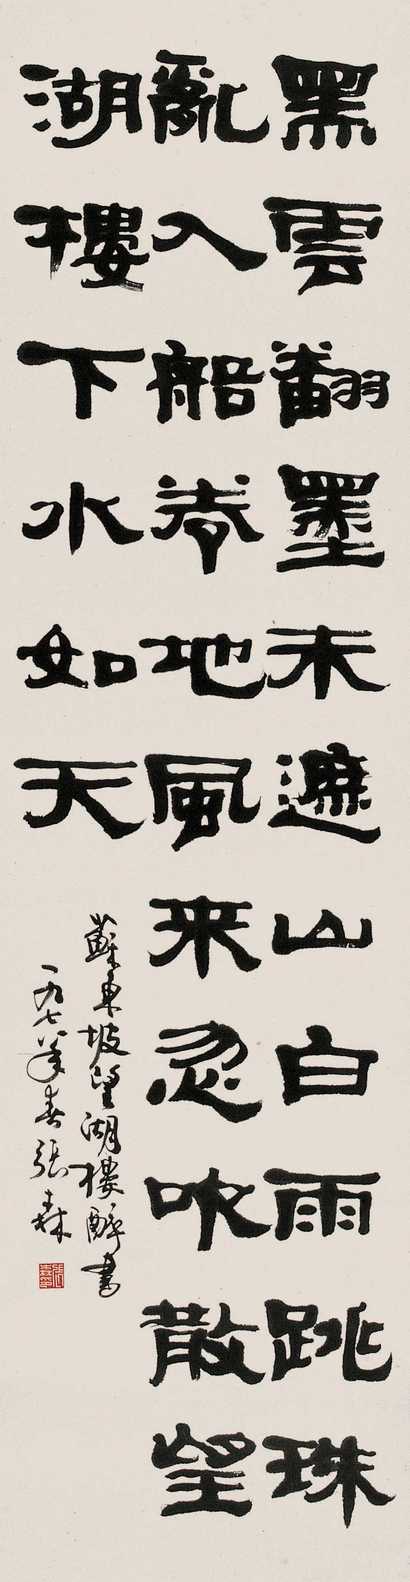 黑雲翻墨未遮山白雨跳珠
亂入船卷地風来忽吹散望
湖樓下水如天
蘇東坡望湖樓醉書
一九七八年春張森